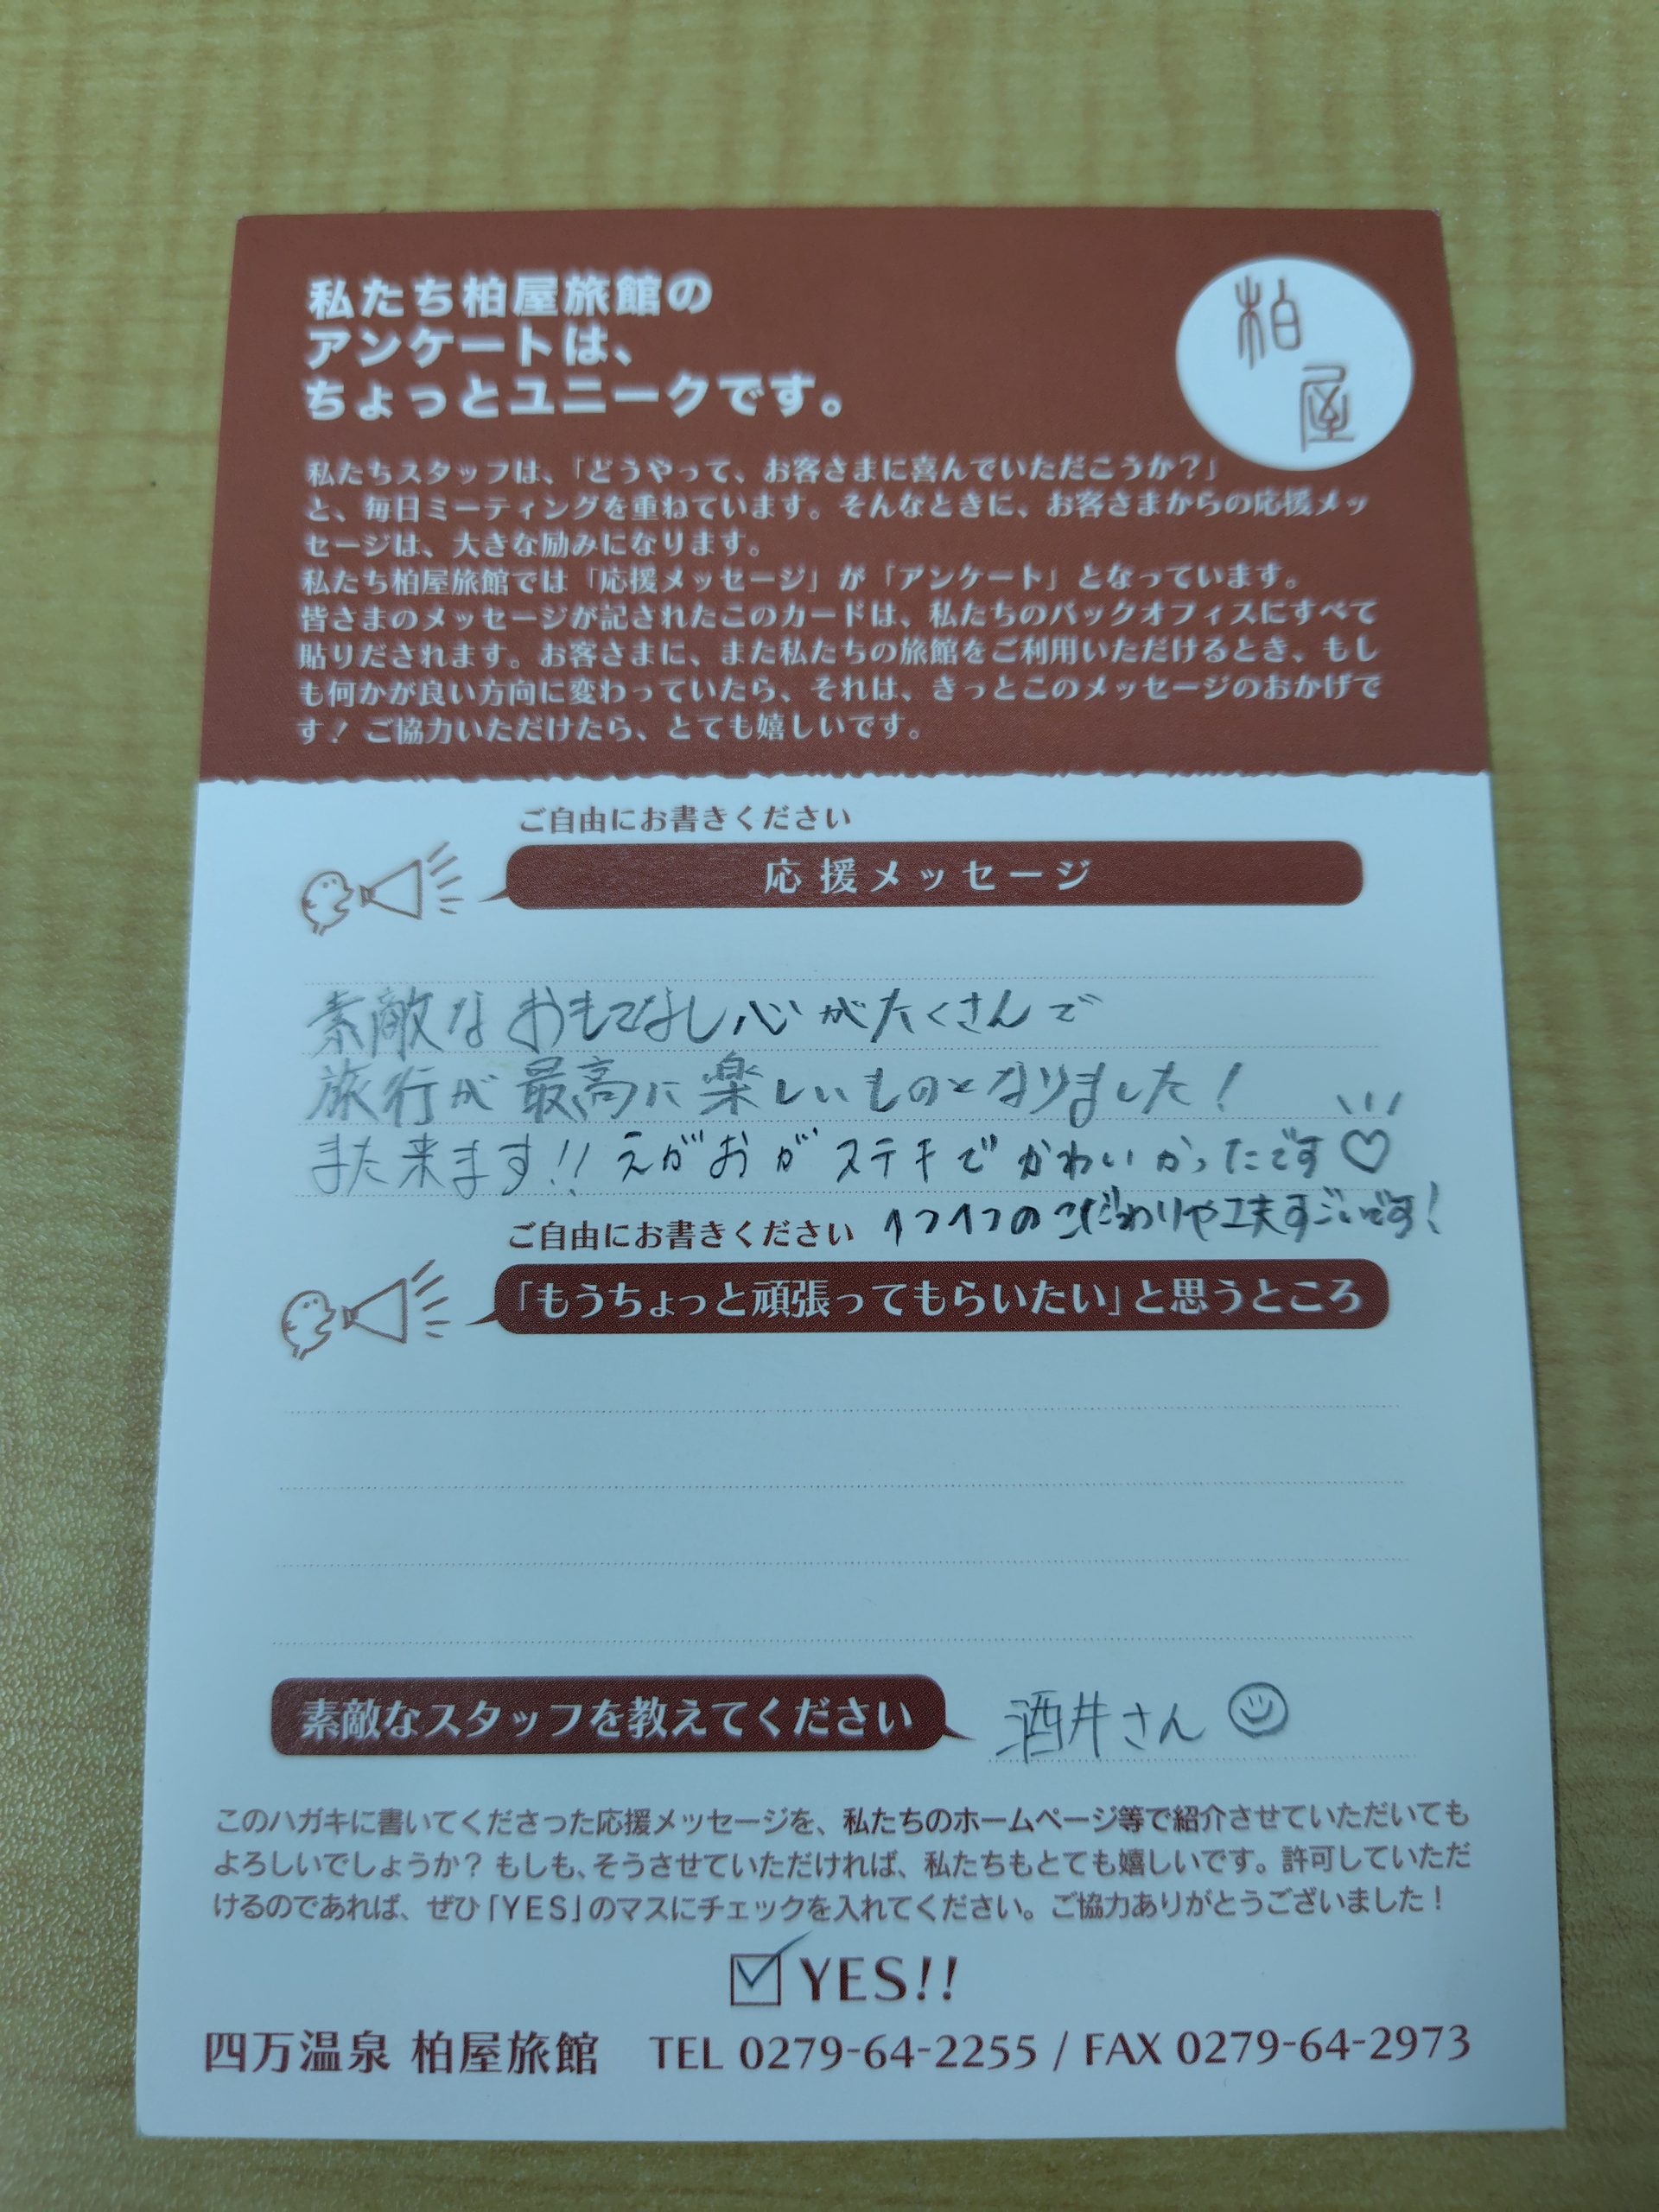 私たち柏屋旅館の
アンケートは、
ちょっとユニークです。
柏
屋
私たちスタッフは、「どうやって、お客さまに喜んでいただこうか？」
と、毎日ミーティングを重ねています。そんなときに、お客さまからの応援メッ
セージは、大きな励みになります。
私たち柏屋旅館では「応援メッセージ」が「アンケート」となっています。
皆さまのメッセージが記されたこのカードは、私たちのバックオフィスにすべて
貼りだされます。お客さまに、また私たちの旅館をご利用いただけるとき、もし
も何かが良い方向に変わっていたら、それは、きっとこのメッセージのおかげで
す！ご協力いただけたら、とても嬉しいです。
ご自由にお書きください
応援メッセージ
素敵なおもてなし心がたくさんで
旅行が最高に楽しいものとなりました！
また来ます!! えがおがステキでかわいかったです♡
1つ1つのこだわりや工夫すごいです！
ご自由にお書きください
「もうちょっと頑張ってもらいたい」と思うところ
素敵なスタッフを教えてください
酒井さん
このハガキに書いてくださった応援メッセージを、私たちのホームページ等で紹介させていただいても
よろしいでしょうか？もしも、そうさせていただければ、私たちもとても嬉しいです。許可していただ
けるのであれば、ぜひ「YES」のマスにチェックを入れてください。ご協力ありがとうございました！
☑YES!!
四万温泉 柏屋旅館 TEL 0279-64-2255 / FAX 0279-64-2973